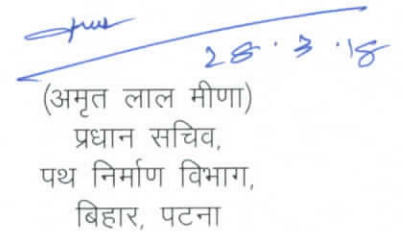 28.3.18
(अमृत लाल मीणा)
प्रधान सचिव,
पथ निर्माण विभाग,
बिहार, पटना